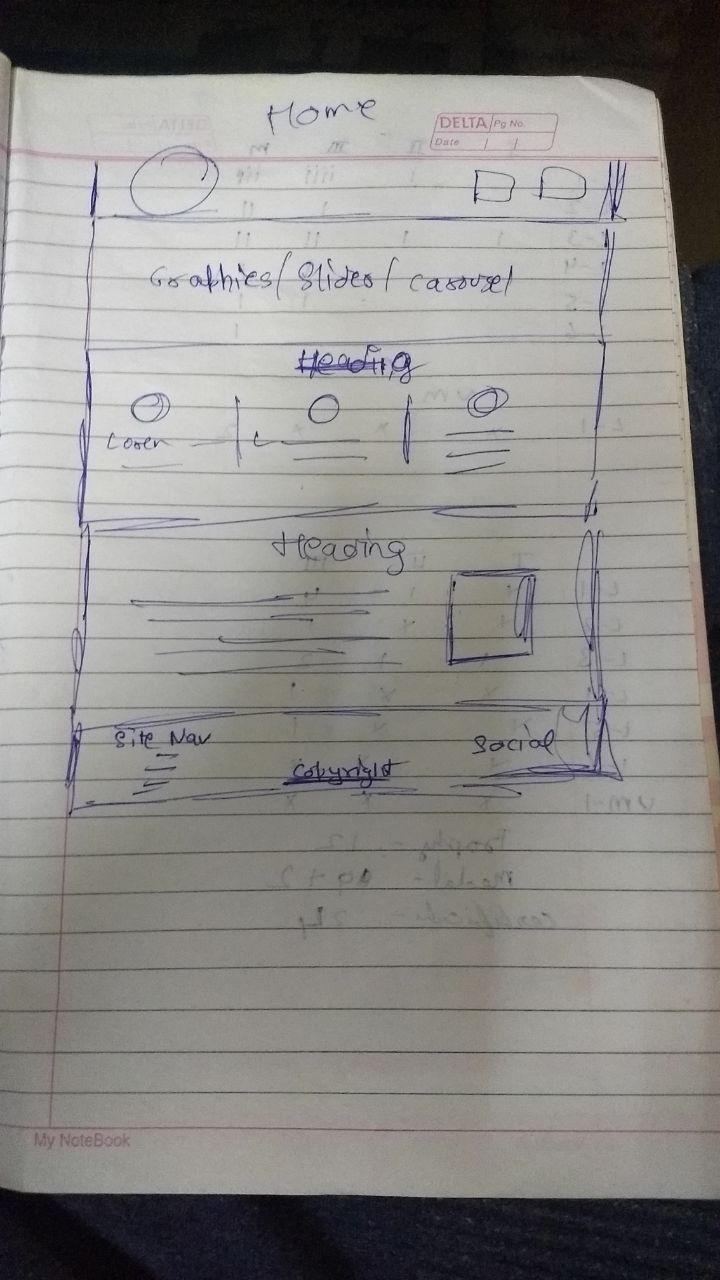 Home
DELTA Pg No.
Date / /
Graphics/ Slider/ Carousel
Heading
Loren
Heading
Site Nav
Social
Copyright
My NoteBook